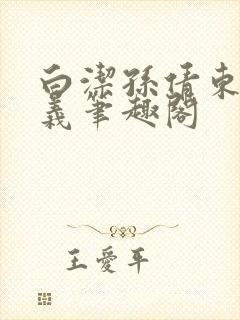 白潔孫倩東
義筆趣閣
王愛平